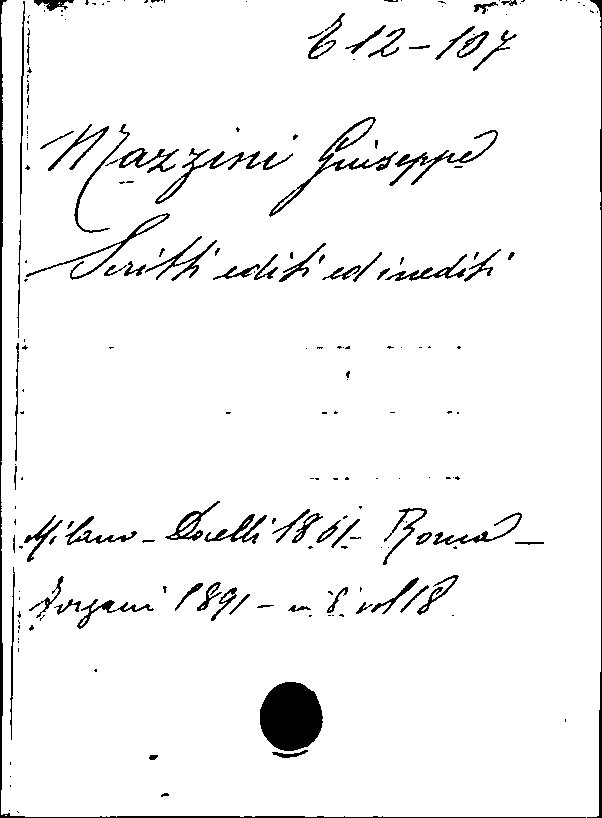 E 12-107
Mazzini Giuseppe
Scritti editi ed inediti
Milano - Daelli 1861 - Roma -
Forzani 1891 - in 8. vol 18